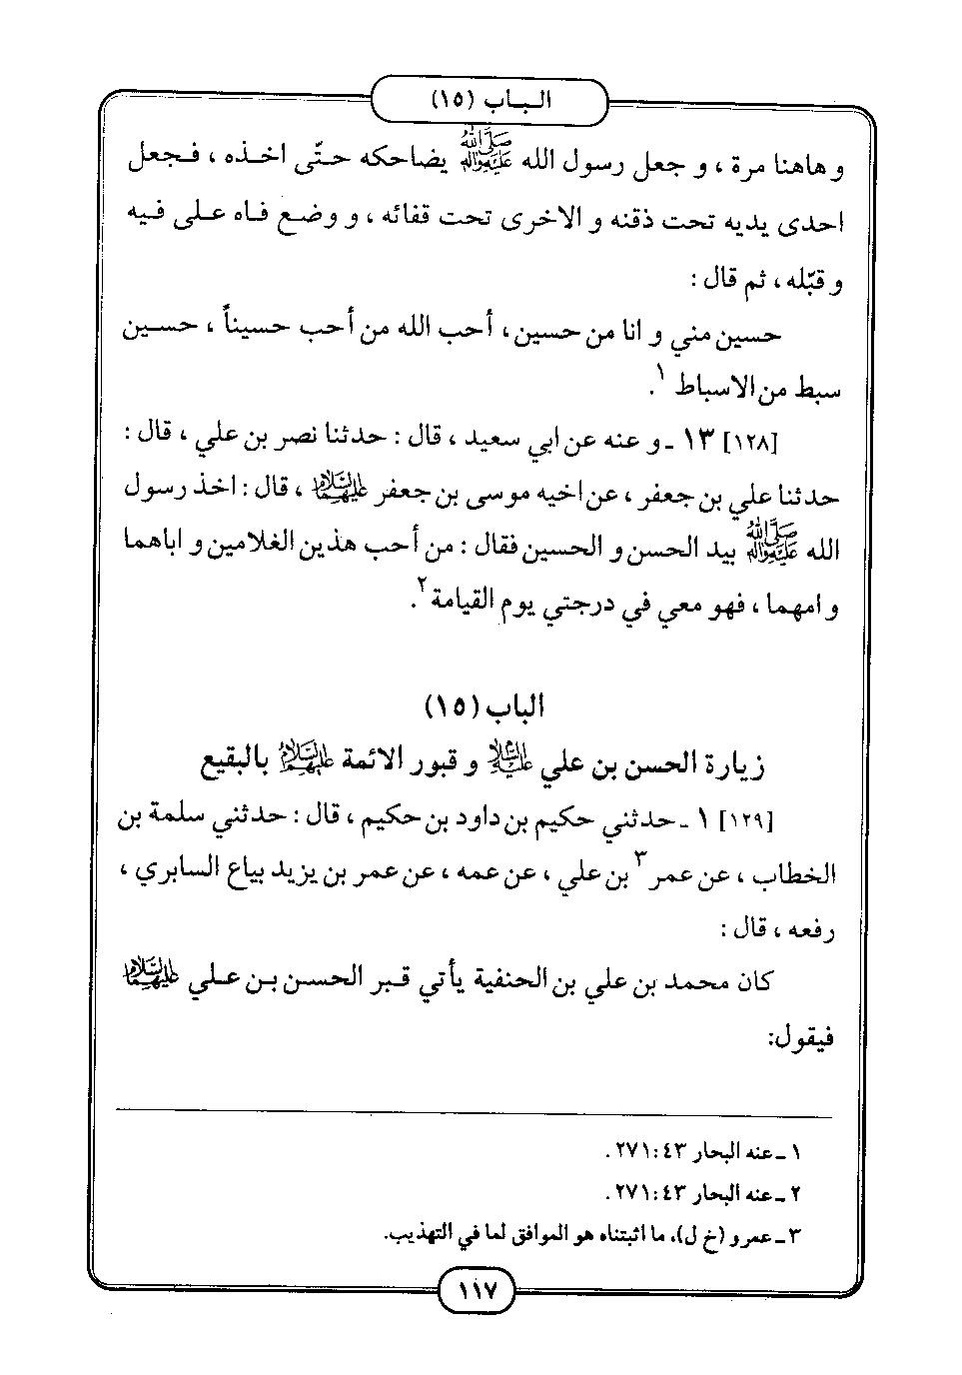 الباب (١٥)
و هاهنا مرة ، و جعل رسول الله صلى الله عليه وآله يضاحكه حتّى اخذه ، فجعل
احدى يديه تحت ذقنه و الاخرى تحت قفائه ، و وضع فاه على فيه
و قبّله ، ثم قال :
حسين مني و انا من حسين ، أحب الله من أحب حسيناً ، حسين
سبط من الاسباط ١.
[١٢٨] ١٣ ـ و عنه عن ابي سعيد ، قال : حدثنا نصر بن علي ، قال :
حدثنا علي بن جعفر ، عن اخيه موسى بن جعفر عليهما السلام ، قال : اخذ رسول
الله صلى الله عليه وآله بيد الحسن و الحسين فقال : من أحب هذين الغلامين و اباهما
و امهما ، فهو معي في درجتي يوم القيامة ٢.
الباب (١٥)
زيارة الحسن بن علي عليه السلام و قبور الائمة عليهم السلام بالبقيع
[١٢٩] ١ ـ حدثني حكيم بن داود بن حكيم ، قال : حدثني سلمة بن
الخطاب ، عن عمر ٣ بن علي ، عن عمه ، عن عمر بن يزيد بياع السابري ،
رفعه ، قال :
كان محمد بن علي بن الحنفية يأتي قبر الحسن بن علي عليهما السلام
فيقول:
١ ـ عنه البحار ٤٣ : ٢٧١ .
٢ ـ عنه البحار ٤٣ : ٢٧١ .
٣ ـ عمرو (خ ل)، ما اثبتناه هو الموافق لما في التهذيب.
١١٧